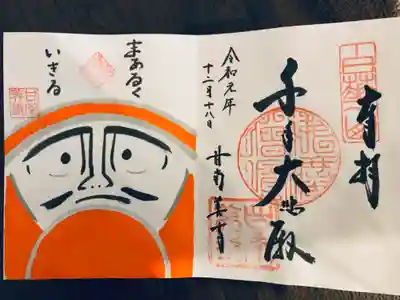 奉拝
千手大悲殿
令和元年
十二月十八日
甘南美寺
まあるく
いきる